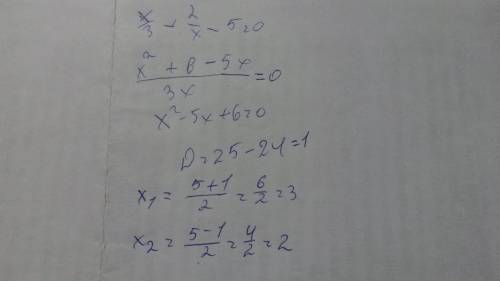 x/3 + 2/x - 5 = 0
(x² + 6 - 5x)/(3x) = 0
x² - 5x + 6 = 0
D = 25 - 24 = 1
x₁ = (5+1)/2 = 6/2 = 3
x₂ = (5-1)/2 = 4/2 = 2